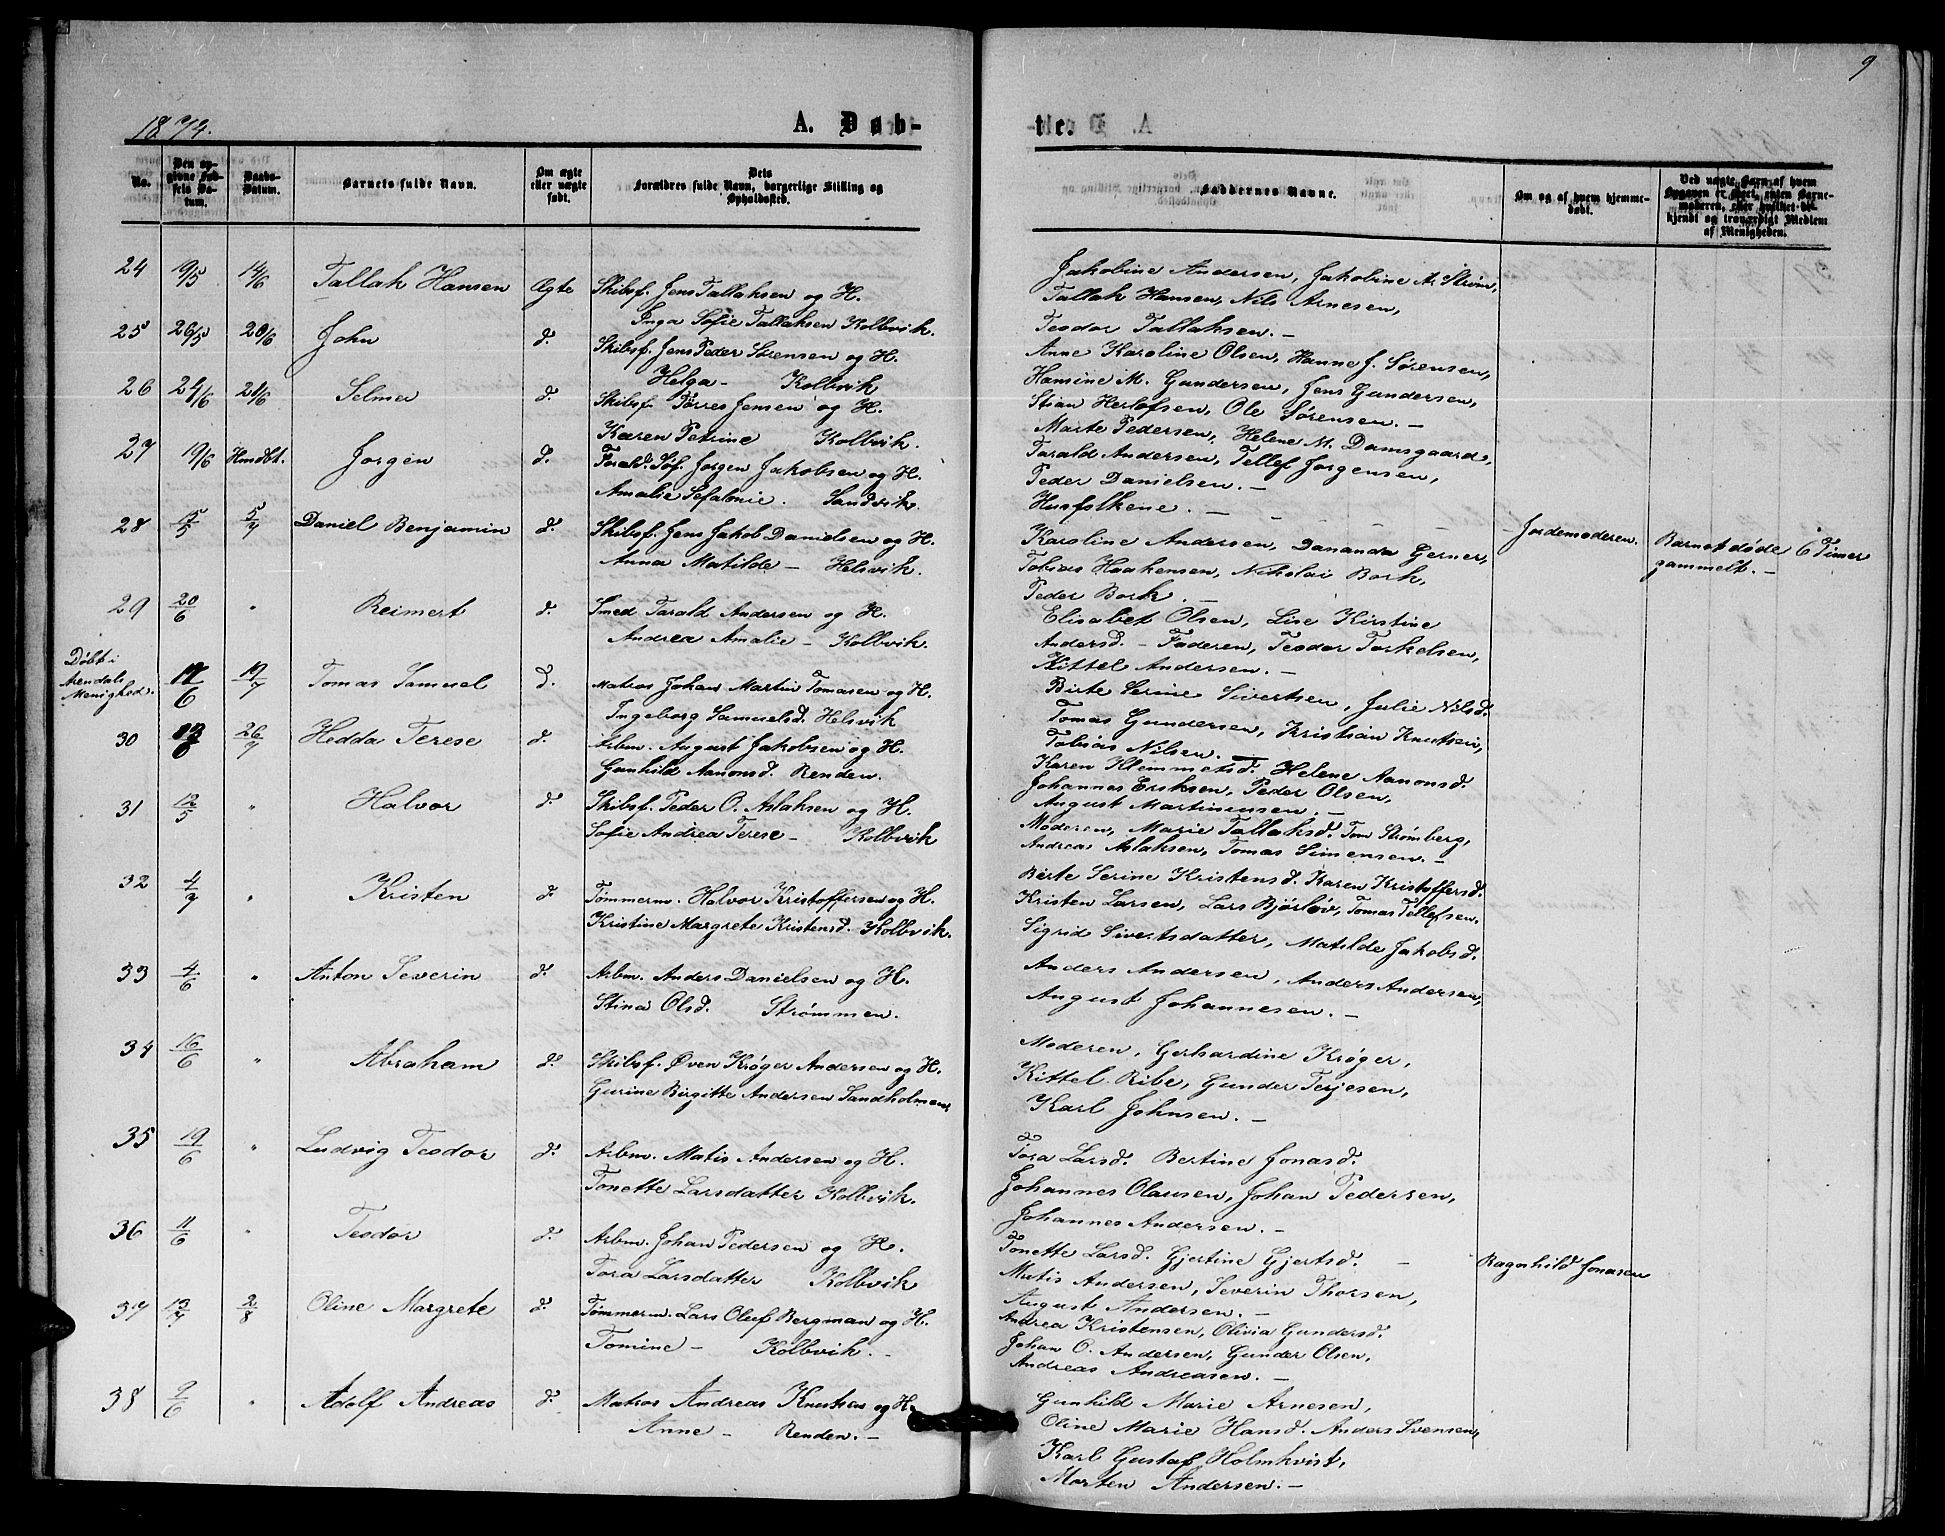 9
1874.
A. Døb-
te.
No.
Den op-
givne Fød-
sels Da-
tum.
Daabs-
Datum.
Barnets fulde Navn.
Om ægte
eller uægte
født.
Dets
Forældres fulde Navn, borgerlige Stilling og
Opholdssted.
Faddernes Navne.
Om og af hvem hjemme-
døbt.
Ved uægte Barn af hvem
Opgaven er skeet, enten Barne-
moderen, eller hvilket be-
kjendt og troværdigt Medlem
af Menigheden.
24 19/5 14/6 Tallak Hansen Ægte Skibsf. Jens Tallaksen og H.
Inga Sofie Tallaksen Kolbvik.
Jakobine Andersen, Jakobine M. Strøm,
Tallak Hansen, Nils Arnesen,
Teodor Tallaksen. —
25 26/5 20/6 John d. Skibsf. Jens Peder Sørensen og H.
Helga — Kolbvik
Anne Karoline Olsen, Hanne J. Sørensen,
Hansine M. Gundersen, Jens Gundersen,
Stian Herlofsen, Ole Sørensen. —
26 24/6 21/6 Selmer d. Skibsf. Tørres Jensen og H.
Karen Petrine Kolbvik.
Marte Pedersen, Helene M. Damsgaard,
Tarald Andersen, Tellef Jorgensen,
Peder Danielsen. —
27 19/6 Hmdbt. Jorgen d. Forald. Søf. Jorgen Jakobsen og H.
Amalie Sefalonie. Sandvik
Husfolkene. —
Jordemoderen.
Barnet døde 6 Timer
gammelt. —
28 15/5 5/7 Daniel Benjamin d. Skibsf. Jens Jakob Danielsen og H.
Anna Matilde — Helsvik.
Karoline Andersen, Dananda Gerner,
Tobias Haakensen, Nikolai Bork,
Peder Bork. —
29 20/6 " Reimert d. Smed Tarald Andersen og H.
Andrea Amalie — Kolbvik.
Elisabet Olsen, Lise Kirstine
Andersd. — Faderen, Teodor Torkelsen,
Kittel Andersen. —
Døbt i
Arendals
Menighed.
17/6 19/7 Tomas Samuel d. Matros Johan Martin Tomasen og H.
Ingeborg Samuelsd. Helsvik
Birte Serine Sivertsen, Julie Nilsd.
Tomas Gundersen, Kristian Knutsen,
Tobias Nilsen. —
30 26/7 Hedda Terese d. Arbm. August Jakobsen og H.
Gunhild Aanonsd. Renden.
Karen Klemmetsd. Helene Aanonsd.
Johannes Eriksen, Peder Olsen,
August Martinusen. —
31 12/5 " Halvor d. Skibsf. Peder O. Aslaksen og H.
Sofie Andrea Terese — Kolbvik
Moderen, Marie Tallaksd. Tom Strømberg,
Andreas Aslaksen, Tomas Simensen. —
32 4/7 " Kristen d. Tømmerm. Halvor Kristoffersen og H.
Kristine Margrete Kristensd. Kolbvik.
Birte Serine Kristensd. Karen Kristoffersd.
Kristen Larsen, Lars Bjørlov, Tomas Tellefsen.
33 4/6 " Anton Severin d. Arbm. Anders Danielsen og H.
Stina Olsd. Strømmen.
Sigrid Sivertsdatter, Matilde Jakobsd.
Anders Andersen, Anders Andersen,
August Johannesen. —
34 16/6 " Abraham d. Skibsf. Øven Krøger Andersen og H.
Gurine Birgitte Andersen Sandholmen
Moderen, Gerhardine Krøger,
Kittel Ribe, Gunder Terjesen,
Karl Johnsen. —
35 19/6 " Ludvig Teodor d. Arbm. Matis Andersen og H.
Tonette Larsdatter Kolbvik.
Tora Larsd. Bertine Jonasd.
Johannes Olausen, Johan Pedersen,
Johannes Andersen. —
36 11/6 " Teodor d. Arbm. Johan Pedersen og H.
Tora Larsdatter Kolbvik
Tonette Larsd. Gjertine Gjertsd. —
Matis Andersen, Severin Thorsen,
August Andersen. —
Ragnhild Jonasen
37 13/7 2/8 Oline Margrete d. Tømmerm. Lars Oluf Bergman og H.
Tomine — Kolbvik. —
Andrea Kristensen, Olivia Gundersd.
Johan O. Andersen, Gunder Olsen,
Andreas Andreasen. —
38 9/6 " Adolf Andreas d. Matros Andreas Knutsen og H.
Anne — Renden. —
Gunhild Marie Arnesen,
Oline Marie Hansd. Anders Svensen,
Karl Gustaf Holmkvist,
Morten Andersen. —